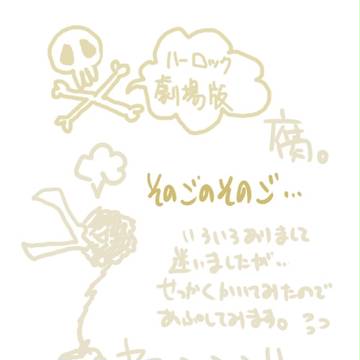 ハーロック
劇場版
腐。
そのごのそのご…
いろいろありまして
迷いましたが…
せっかくかいてみたので
あぷしてみます。